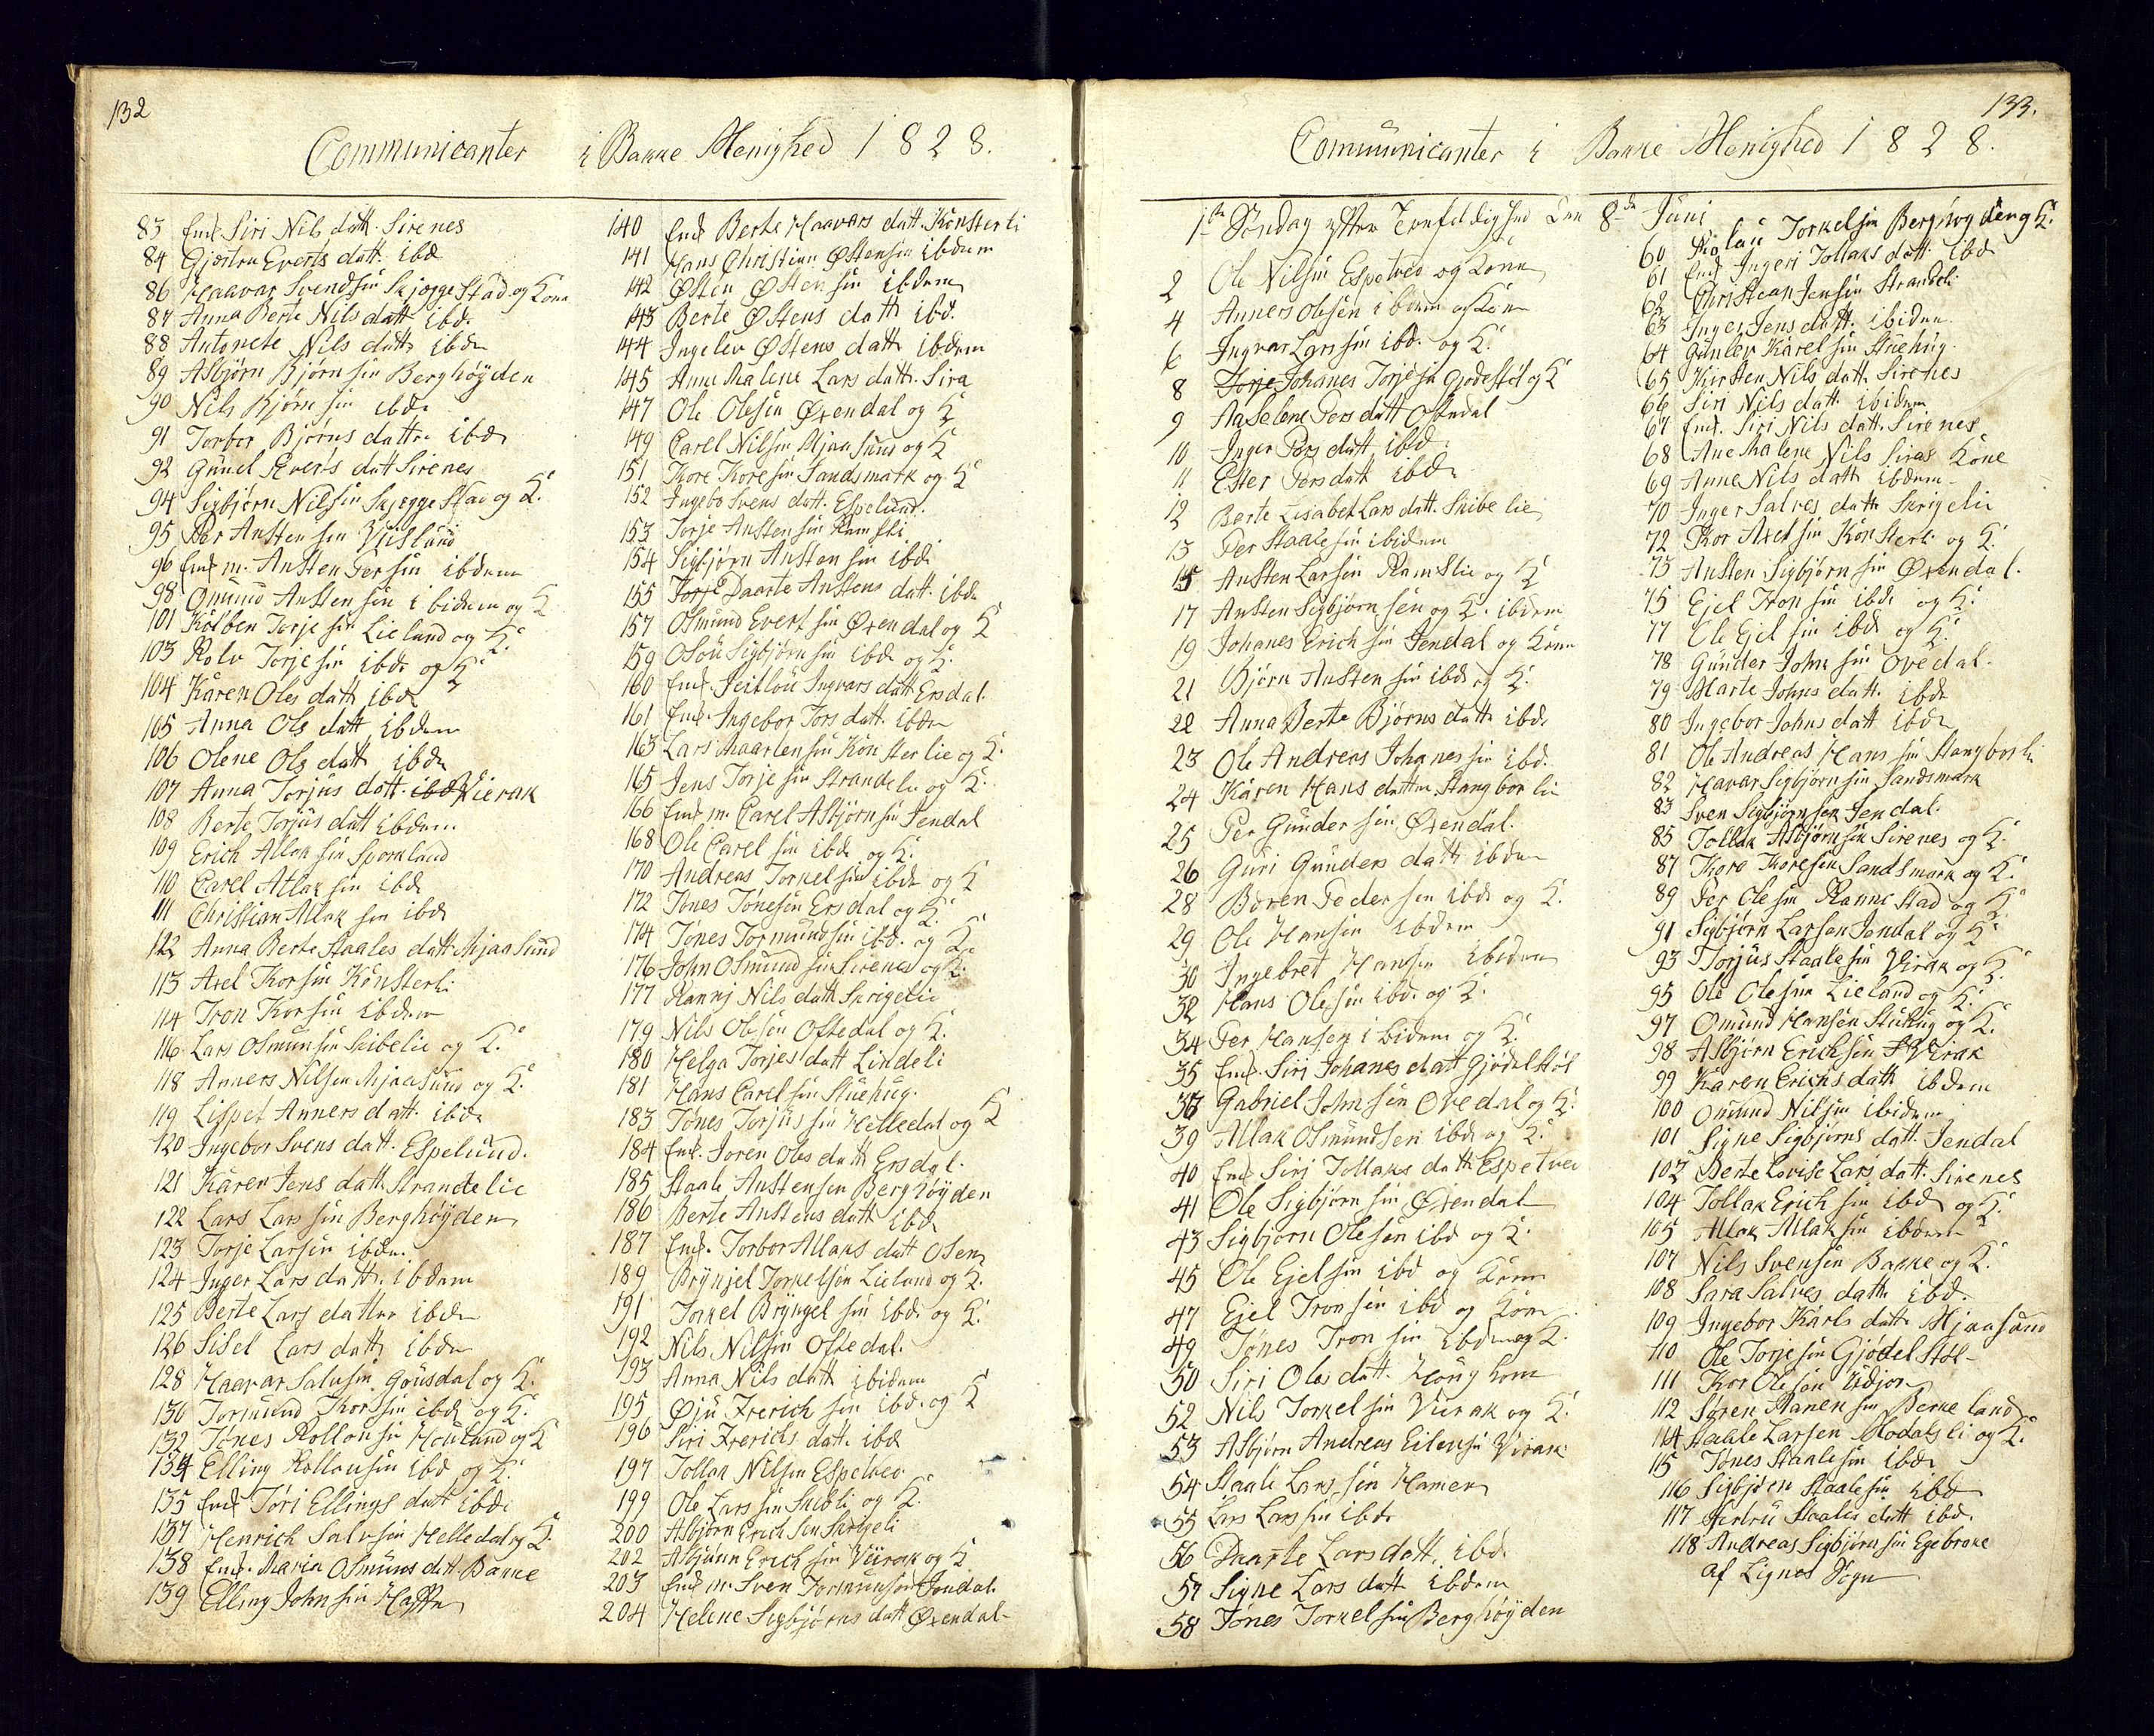 132
Communicanter i Bakke Menighed 1828.
83 Enk Siri Nils datt. Sirenes
84 Gjertru Everts datt. ibd
86 Haavar Svendsin Skjeggestad og Kone
87 Anna Berte Nils datt ibd.
88 Antonete Nils datt. ibdm
89 Asbjørn Bjørn sin Berghöyden
90 Nils Bjørn sin ibd.
91 Torbor Bjørns datter ibd
92 Gunel Everts datt Sirenes
94 Sigbjørn Nilsin Skjeggestad og K.
95 Per Ansten sen Viisland
96 Enk m. Ansten Persin ibdem
98 Omund Ansten sen ibidem og K
101 Kolben Torje sin Lieland og K.
103 Rolv Torjesin ibd. og K
104 Karen Oles datt. ibd
105 Anna Ols datt ibdem
106 Olene Ols datt ibdm
107 Anna Torjus datt. ibd Vierak
108 Berte Torjus datt ibdem.
109 Erich Atlak sin Sporkland
110 Carel Atlak sin ibd
111 Christian Atlak sen ibd
122 Anna Berte Staales datt. Mjaasund
113 Axel Korsin Könsterli
114 Tron Korsin ibdem
116 Lars Osmunsin Skibelie og K.
118 Anners Nilsen Mjaasund og K.
119 Lispet Anners datt. ibid
120 Ingebor Svens datt. Espelund.
121 Karen Jens datt Strandelie
122 Lars Lars sin Berghöyden
123 Torje Larsin ibdm.
124 Inger Lars datt. ibdem
125 Berte Lars datter ibdm
126 Sisel Lars datt. ibdm
128 Haavar Salvsin Gousdal og K.
130 Tormund Korsin ibd og K.
132 Tönes Rollousin Houland og K
134 Elling Rollousin ibd og K.
135 Enk Töri Ellings datt ibd.
137 Henrich Salvsin Helledal og K.
138 Enk. Maria Osmuns dat. Bakke
139 Elling Johnsin Haffte
140 Enk Berte Haavars datt. Könsterli
141 Hans Christian Østensin ibdem
142 Østen Østen sin ibdem
143 Berte Østens datt. ibd.
144 Ingelev Østens datt. ibdem
145 Anne Malene Lars datt. Sira
147 Ole Olesin Øxendal og K
149 Carel Nilsen Mjaasuns og K
151 Kore Kore sin Sandsmark og K
152 Ingebo Svens datt. Espelund.
153 Torje Ansten sin Ramsli
154 Sigbjørn Ansten sin ibd.
155 Torje Daarte Anstens datt. ibd
157 Osmund Evert sin Øxendal og K
159 Osou Sigbjørn sin ibd. og K.
160 Enk. Seitlou Ingvars datt Ersdal.
161 Enk. Ingebor Tors datt. ibdm
163 Lars Maarten sin Könsterlie og K.
165 Jens Torje sin Strandelie og K.
166 Enk m. Carel Asbjørn sin Jendal
168 Ole Carel sin ibd. og K.
170 Andreas Torkel sin ibd og K
172 Tönes Tönesen Ersdal og K.
174 Tönes Tormundsin ibd. og K.
176 John Osmund sin Sirenes og K.
177 Rannj Nils datt Skrigelie
179 Nils Olesen Oftedal og K.
180 Helga Torjes datt Lindeli
181 Hans Carel sin Stuehug.
183 Tönes Torjus sin Helledal og K
184 Enk. Joren Oles datt. Ersdal.
185 Staale Anstensen Berghöyden
186 Berte Anstens datt ibd
187 Enk. Torbor Atlaks datt Osen
189 Brynjel Torkelsen Lieland og K.
191 Torkel Bryngel sin ibd. og K.
192 Nils Nilsin Oftedal.
193 Anna Nils datt ibidem
195 Øju Frerich sin ibd. og K
196 Siri Frerichs datt. ibd
197 Tollak Nilsen Espetved
199 Ole Lars sin Skibli og K.
200 Asbjørn Erich sen Skrigeli
202 Asbjørn Erich sin Viirak og K
203 Enk m. Sven Tormunsen Jendal
204 Helene Sigbjørns datt Øxendal
133.
Communicanter i Bakke Menighed 1828.
1te Søndag efter Trefoldighed den 8de Juni
2 Ole Nilsin Espetved og Kone
4 Anners Olesen ibidem og Kone
6 Ingvar Larssin ibd. og K.
8 Torje Johanes Torjesin Gjödestöl og K
9 Aaselene Pers datt Oftedal
10 Inger Pers datt. ibd
11 Ester Pers datt ibd
12 Berte Lisabet Lars datt. Skibelie
13 Per Staale sin ibidem
15 Ansten Larsen Ramslie og K
17 Ansten Sigbjørn sen og K. ibdem
19 Johanes Erich sin Jendal og Kone
21 Bjørn Ansten sin ibd og K.
22 Anna Berte Bjørns datt. ibd.
23 Ole Andreas Johanes sin ibd.
24 Karen Hans datter Stangborlie
25 Per Gunder sin Øxendal.
26 Guri Gunders datt. ibdem
28 Boren Peder sen ibd og K.
29 Ole Hansen ibdem
30 Ingebret Hansen ibidem
32 Hans Olesin ibd. og K.
34 Per Hansen ibidem og K.
35 Enk. Siri Johanes datt Gjødelstöl
37 Gabriel John sin Ovedal og K.
39 Atlak Osmundsen ibd og K.
40 Enk Siri Tollaks datt Espetved
41 Ole Sigbjørn sin Øxendal
43 Sigbjørn Olesen ibd og K.
45 Ole Ejelsin ibd og Kone
47 Ejel Tronsin ibd og Kone
49 Tønes Tron sin ibdm og K.
50 Siri Oles datt. Houghom
52 Nils Torkel sin Viirak og K.
53 Asbjørn Andreas Eilensin Virak
54 Staale Lars sin Hamen
55 Lars Lars sin ibd.
56 Daarte Lars datt. ibd.
57 Signe Lars datt ibdem
58 Tönes Torkelsin Berghöyden
60 Niolau Torkelsin Berghoyden og K.
61 Enk Ingeri Tollaks datt ibd
62 Christean Jensin Strandeli
63 Inger Jens datt. ibidem
64 Gunlev Karel sin Stuehug.
65 Kirsten Nils datt. Sirenes
66 Siri Nils datt ibidem
67 Enk. Siri Nils datt. Sirenes
68 Ane Malene Nils Siras Kone
69 Anne Nils datt ibdem
70 Inger Salves datt. Skrigelie
72 Kor Axel sin Könsterli og K.
73 Ansten Sigbjørn sin Øxendal.
75 Ejel Tron sin ibd. og K.
77 Ole Ejel sin ibd og K.
78 Gunder John sin Ovedal.
79 Marte Johns datt. ibd
80 Ingebor Johns datt ibd
81 Ole Andreas Hans sin Stangborli
82 Havar Sigbjørnsin Sandsmark
83 Sven Sigbjørnsen Jendal.
85 Tollak Asbjørnsin Sirenes og K.
87 Kore Koresen Sandsmark og K.
89 Per Ole sin Rannestad og K
91 Sigbjørn Larsen Jendal og K
93 Torjus Staale sin Virak og K.
95 Ole Olesen Lieland og K.
97 Omund Hansen Stuhug og K.
98 Asbjørn Erichsin Virak
99 Karen Erichs datt ibdem
100 Omund Nilsin ibidem
101 Signe Sigbjørns datt. Jendal
102 Berte Lovise Lars datt. Sirenes
104 Tollak Erich sin ibd og K.
105 Atlak Atlaksin ibdem
107 Nils Svensen Bakke og K.
108 Sara Salves datt. ibd.
109 Ingebor Karls datt. Mjaasund
110 Ole Torjesin Gjödelstöl
111 Kor Olesen Udjor
112 Søren Hanensin Berkeland
114 Staale Larsen Modalsli og K.
115 Tönes Staale sin ibd.
116 Sigbjörn Staale sin ibd
117 Staales datt ibd.
118 Andreas Sigbjørn sin Egebroke
af Lignes Sogn